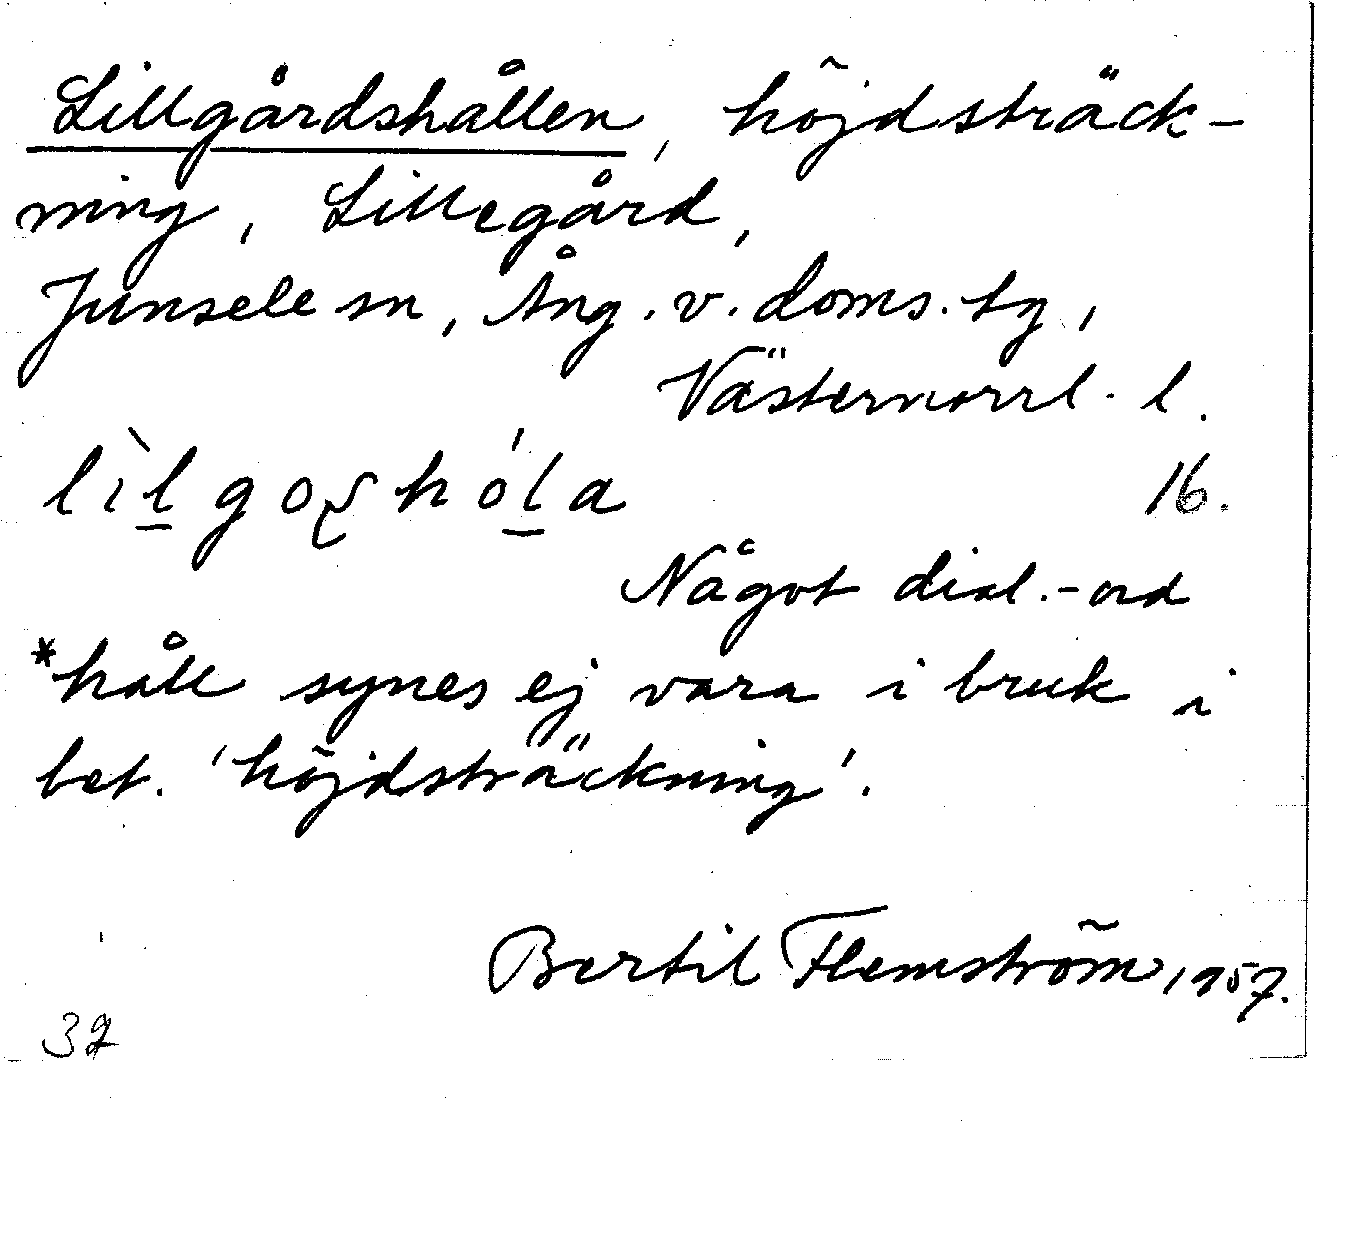 Lillgårdshållen, höjdsträck-
ning, Lillegård,
Junsele sn, Ång. v. doms. tg,
Västernorrl. l.
lìl̠goʂhól̠a 16.
Något dial.-ord
*håll synes ej vara i bruk i
bet. 'höjdsträckning'.
Bertil Flemström, 1957.
32